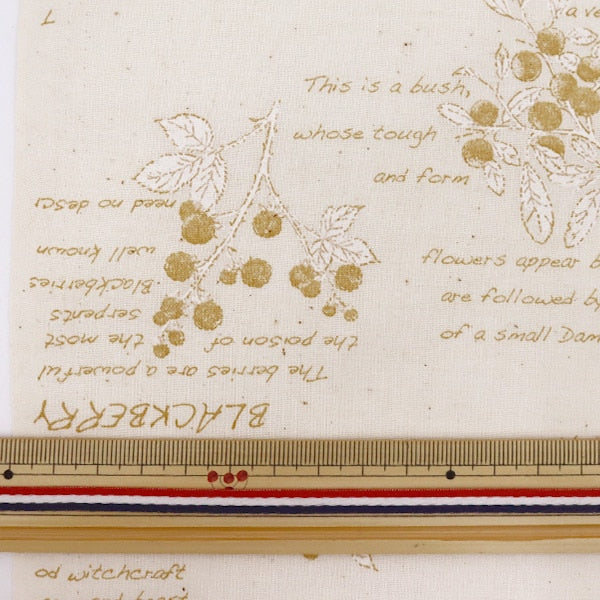 This is a bush,
whose tough
and form
flowers appear b
are followed by
of a small Dam
BLACKBERRY
The berries are a powerful
the poison of the most
serpents
Blackberries
well known
need no descr
od witchcraft